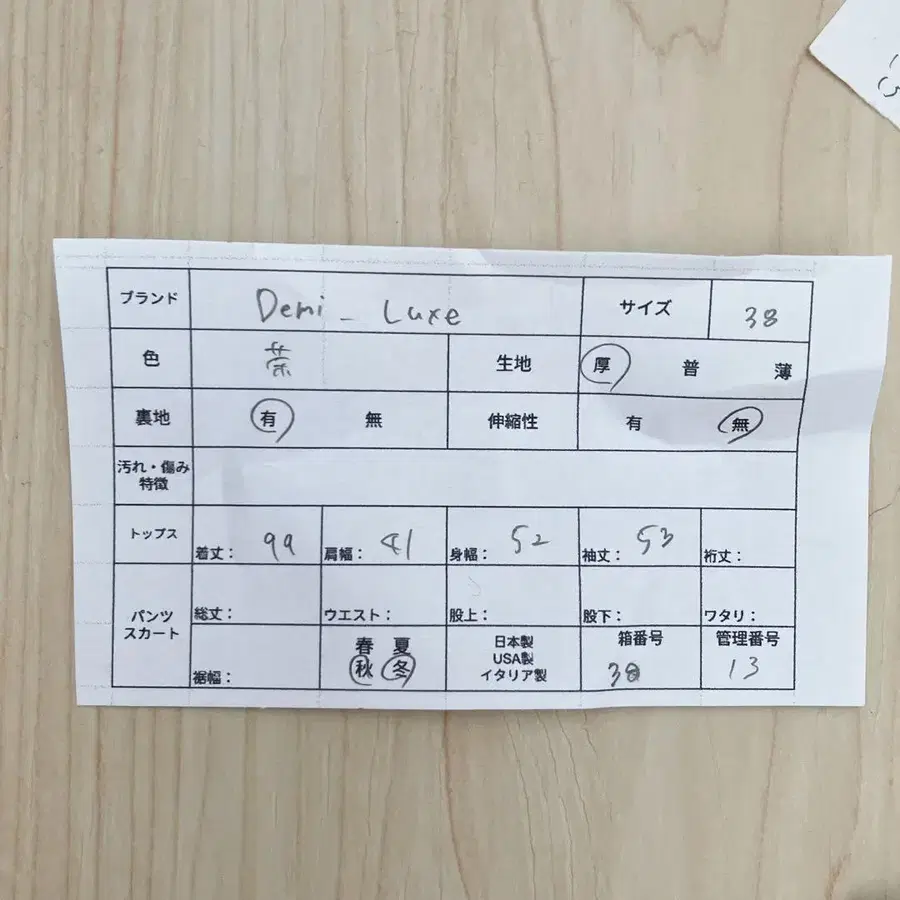 ブランド Demi_Luxe サイズ 38
色 茶 生地 厚 普 薄
裏地 有 無 伸縮性 有 無
汚れ・傷み
特徴
トップス 着丈: 99 肩幅: 41 身幅: 52 袖丈: 53 裄丈:
パンツ
スカート
総丈: ウエスト: 股上: 股下: ワタリ:
裾幅:
春 夏
秋 冬
日本製
USA製
イタリア製
箱番号
管理番号
13